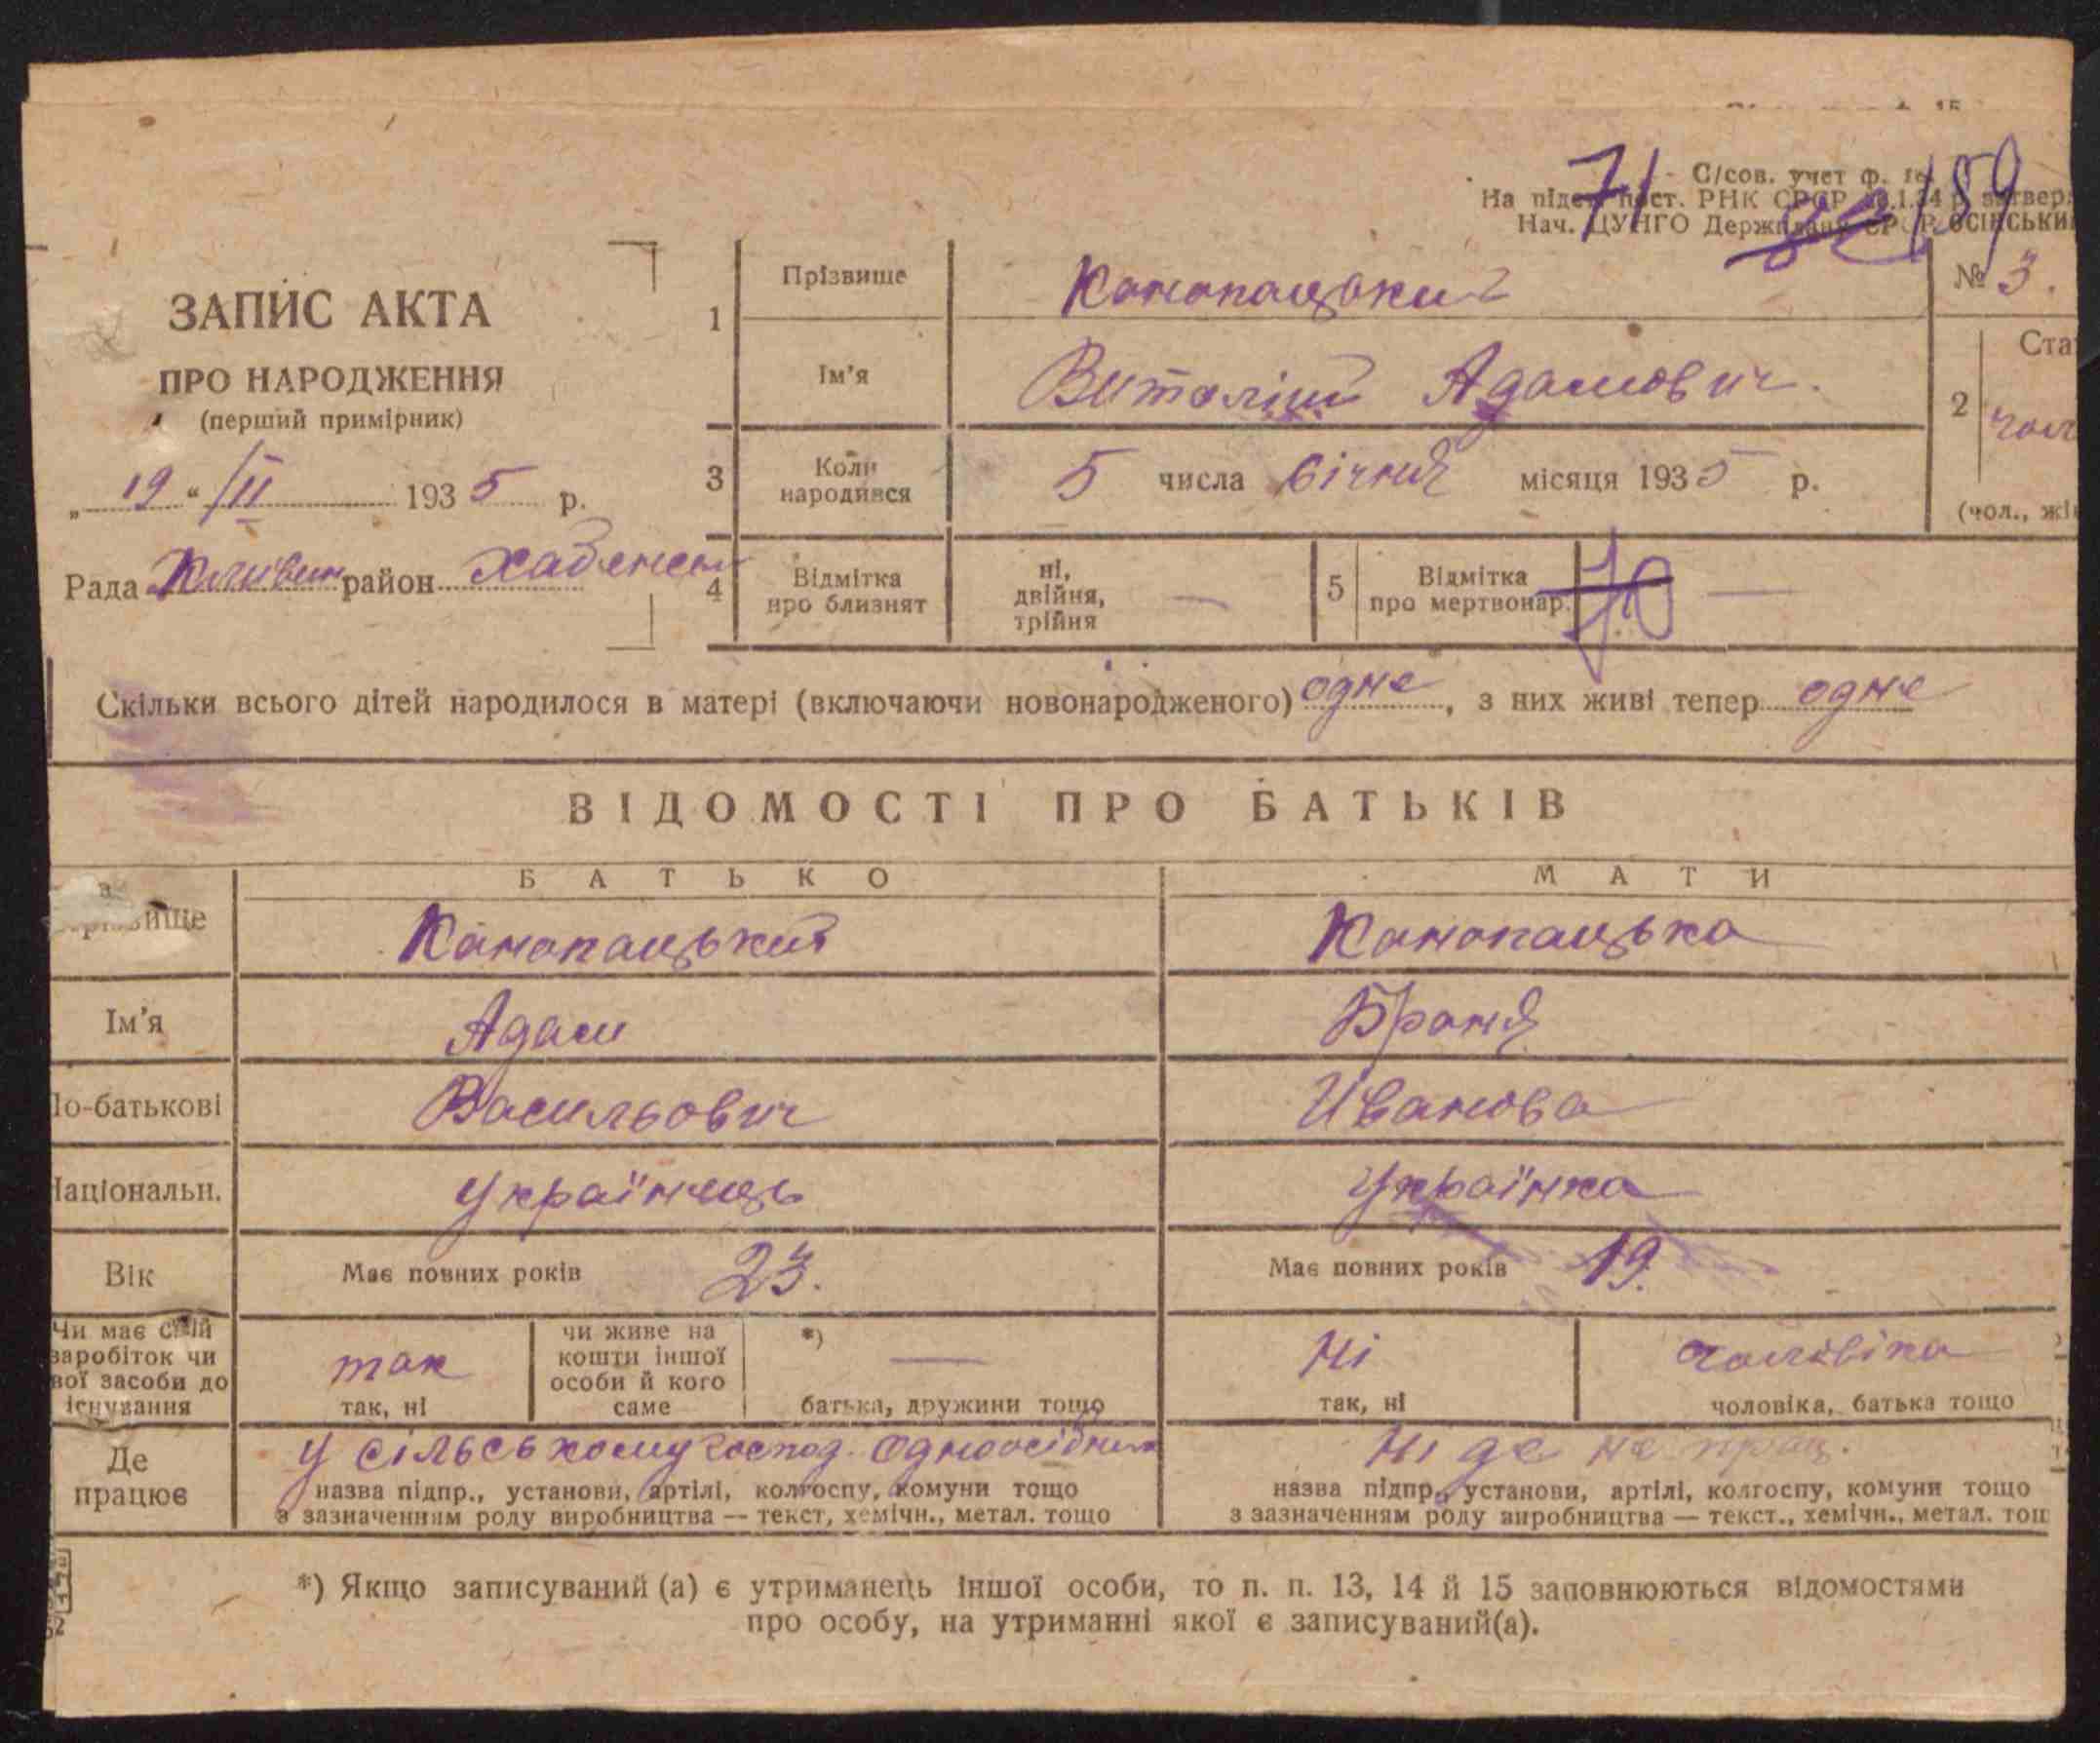 71 /59
С/сов. учет ф.
На підст. пост. РНК СРСР 1.34 р. затвер
Нач. ЦУНГО Держплана СРСР ОСІНСЬКИ
ЗАПИС АКТА
ПРО НАРОДЖЕННЯ
(перший примірник)
„19“ /II 1935 р.
Рада район
1
Прізвище
Конопацький
№ 3.
Ім'я
Виталій Адамович.
2
Ста
чол
(чол., жі
3
Коли народився
5 числа січня місяця 1935 р.
4
Відмітка про близнят
ні, двійня, трійня —
5
Відмітка про мертвонар. —
70
Скільки всього дітей народилося в матері (включаючи новонародженого) одне, з них живі тепер одне
ВІДОМОСТІ ПРО БАТЬКІВ
БАТЬКО МАТИ
Конопацький Конопацька
Ім'я Адам Броня
По-батькові Васильович Иванова
Національн. українець Українка
Вік Має повних років 23. Має повних років 19.
Чи має свій
заробіток чи
свої засоби до
існування
так
так, ні
чи живе на
кошти іншої
особи й кого
саме
*) —
батька, дружини тощо
Ні
так, ні
чоловіка
чоловіка, батька тощо
Де
працює
у сільському господ. одноосібник
назва підпр., установи, артілі, колгоспу, комуни тощо
з зазначенням роду виробництва — текст, хемічн., метал. тощо
Ні де не прац.
назва підпр., установи, артілі, колгоспу, комуни тощо
з зазначенням роду виробництва — текст., хемічн., метал. тощ
*) Якщо записуваний (а) є утриманець іншої особи, то п. п. 13, 14 й 15 заповнюються відомостями
про особу, на утриманні якої є записуваний(а).